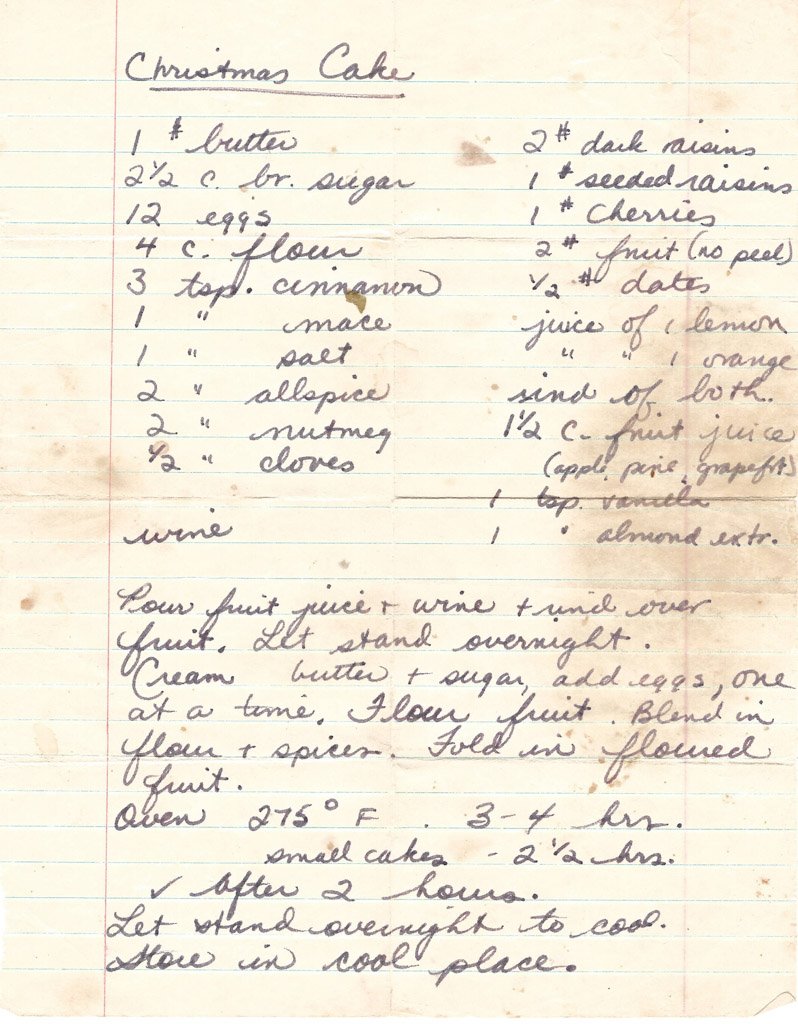 Christmas Cake
1 # butter
2 1/2 c. br. sugar
12 eggs
4 c. flour
3 tsp. cinnamon
1 " mace
1 " salt
2 " allspice
2 " nutmeg
1/2 " cloves
wine
2 # dark raisins
1 # seeded raisins
1 # Cherries
2 # fruit (no peel)
1/2 # dates
juice of 1 lemon
" " 1 orange
rind of both.
1 1/2 c. fruit juice
(apple, pine, grapefrt)
1 tsp. vanilla
1 " almond extr.
Pour fruit juice + wine + rind over
fruit. Let stand overnight.
Cream butter + sugar, add eggs, one
at a time. Flour fruit. Blend in
flour + spices. Fold in floured
fruit.
Oven 275° F . 3-4 hrs.
small cakes - 2 1/2 hrs.
✓ after 2 hours.
Let stand overnight to cool.
Store in cool place.